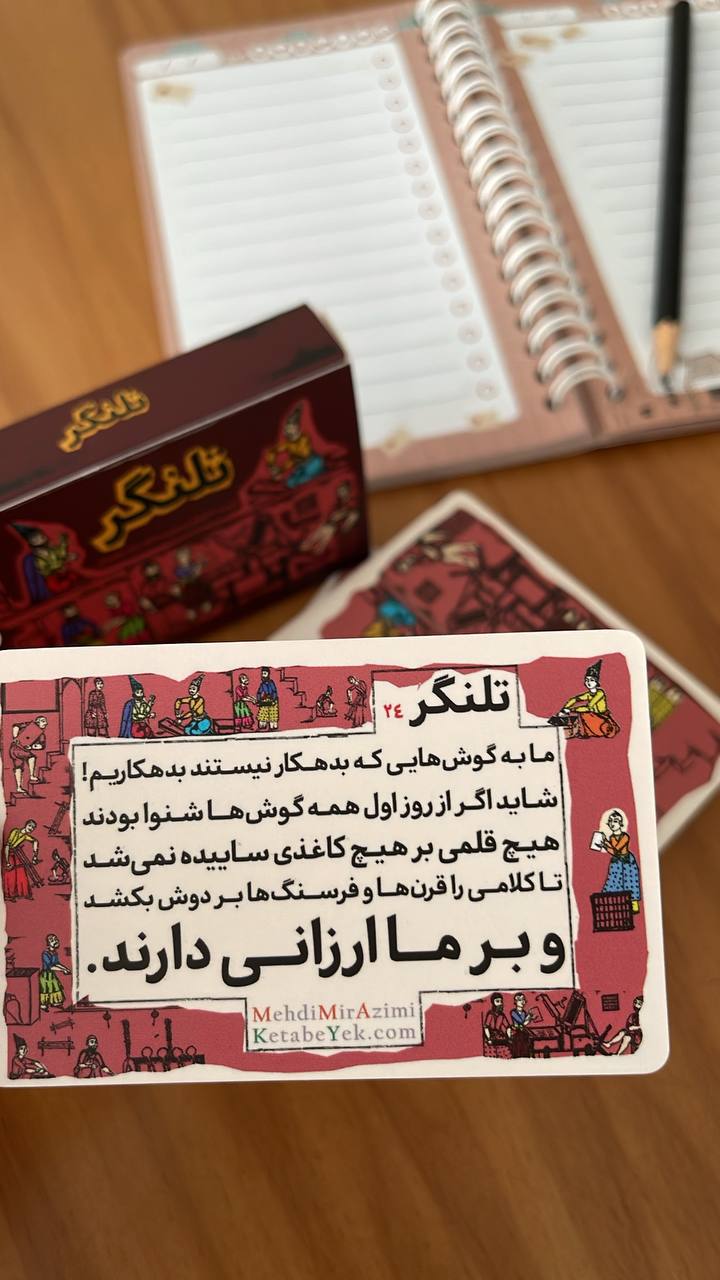 تلنگر
تلنگر
تلنگر ٢٤
ما به گوش‌هایی که بدهکار نیستند بدهکاریم!
شاید اگر از روز اول همه گوش‌ها شنوا بودند
هیچ قلمی بر هیچ کاغذی ساییده نمی‌شد
تا کلامی را قرن‌ها و فرسنگ‌ها بر دوش بکشد
و بر ما ارزانی دارند.
MehdiMirAzimi
KetabeYek.com